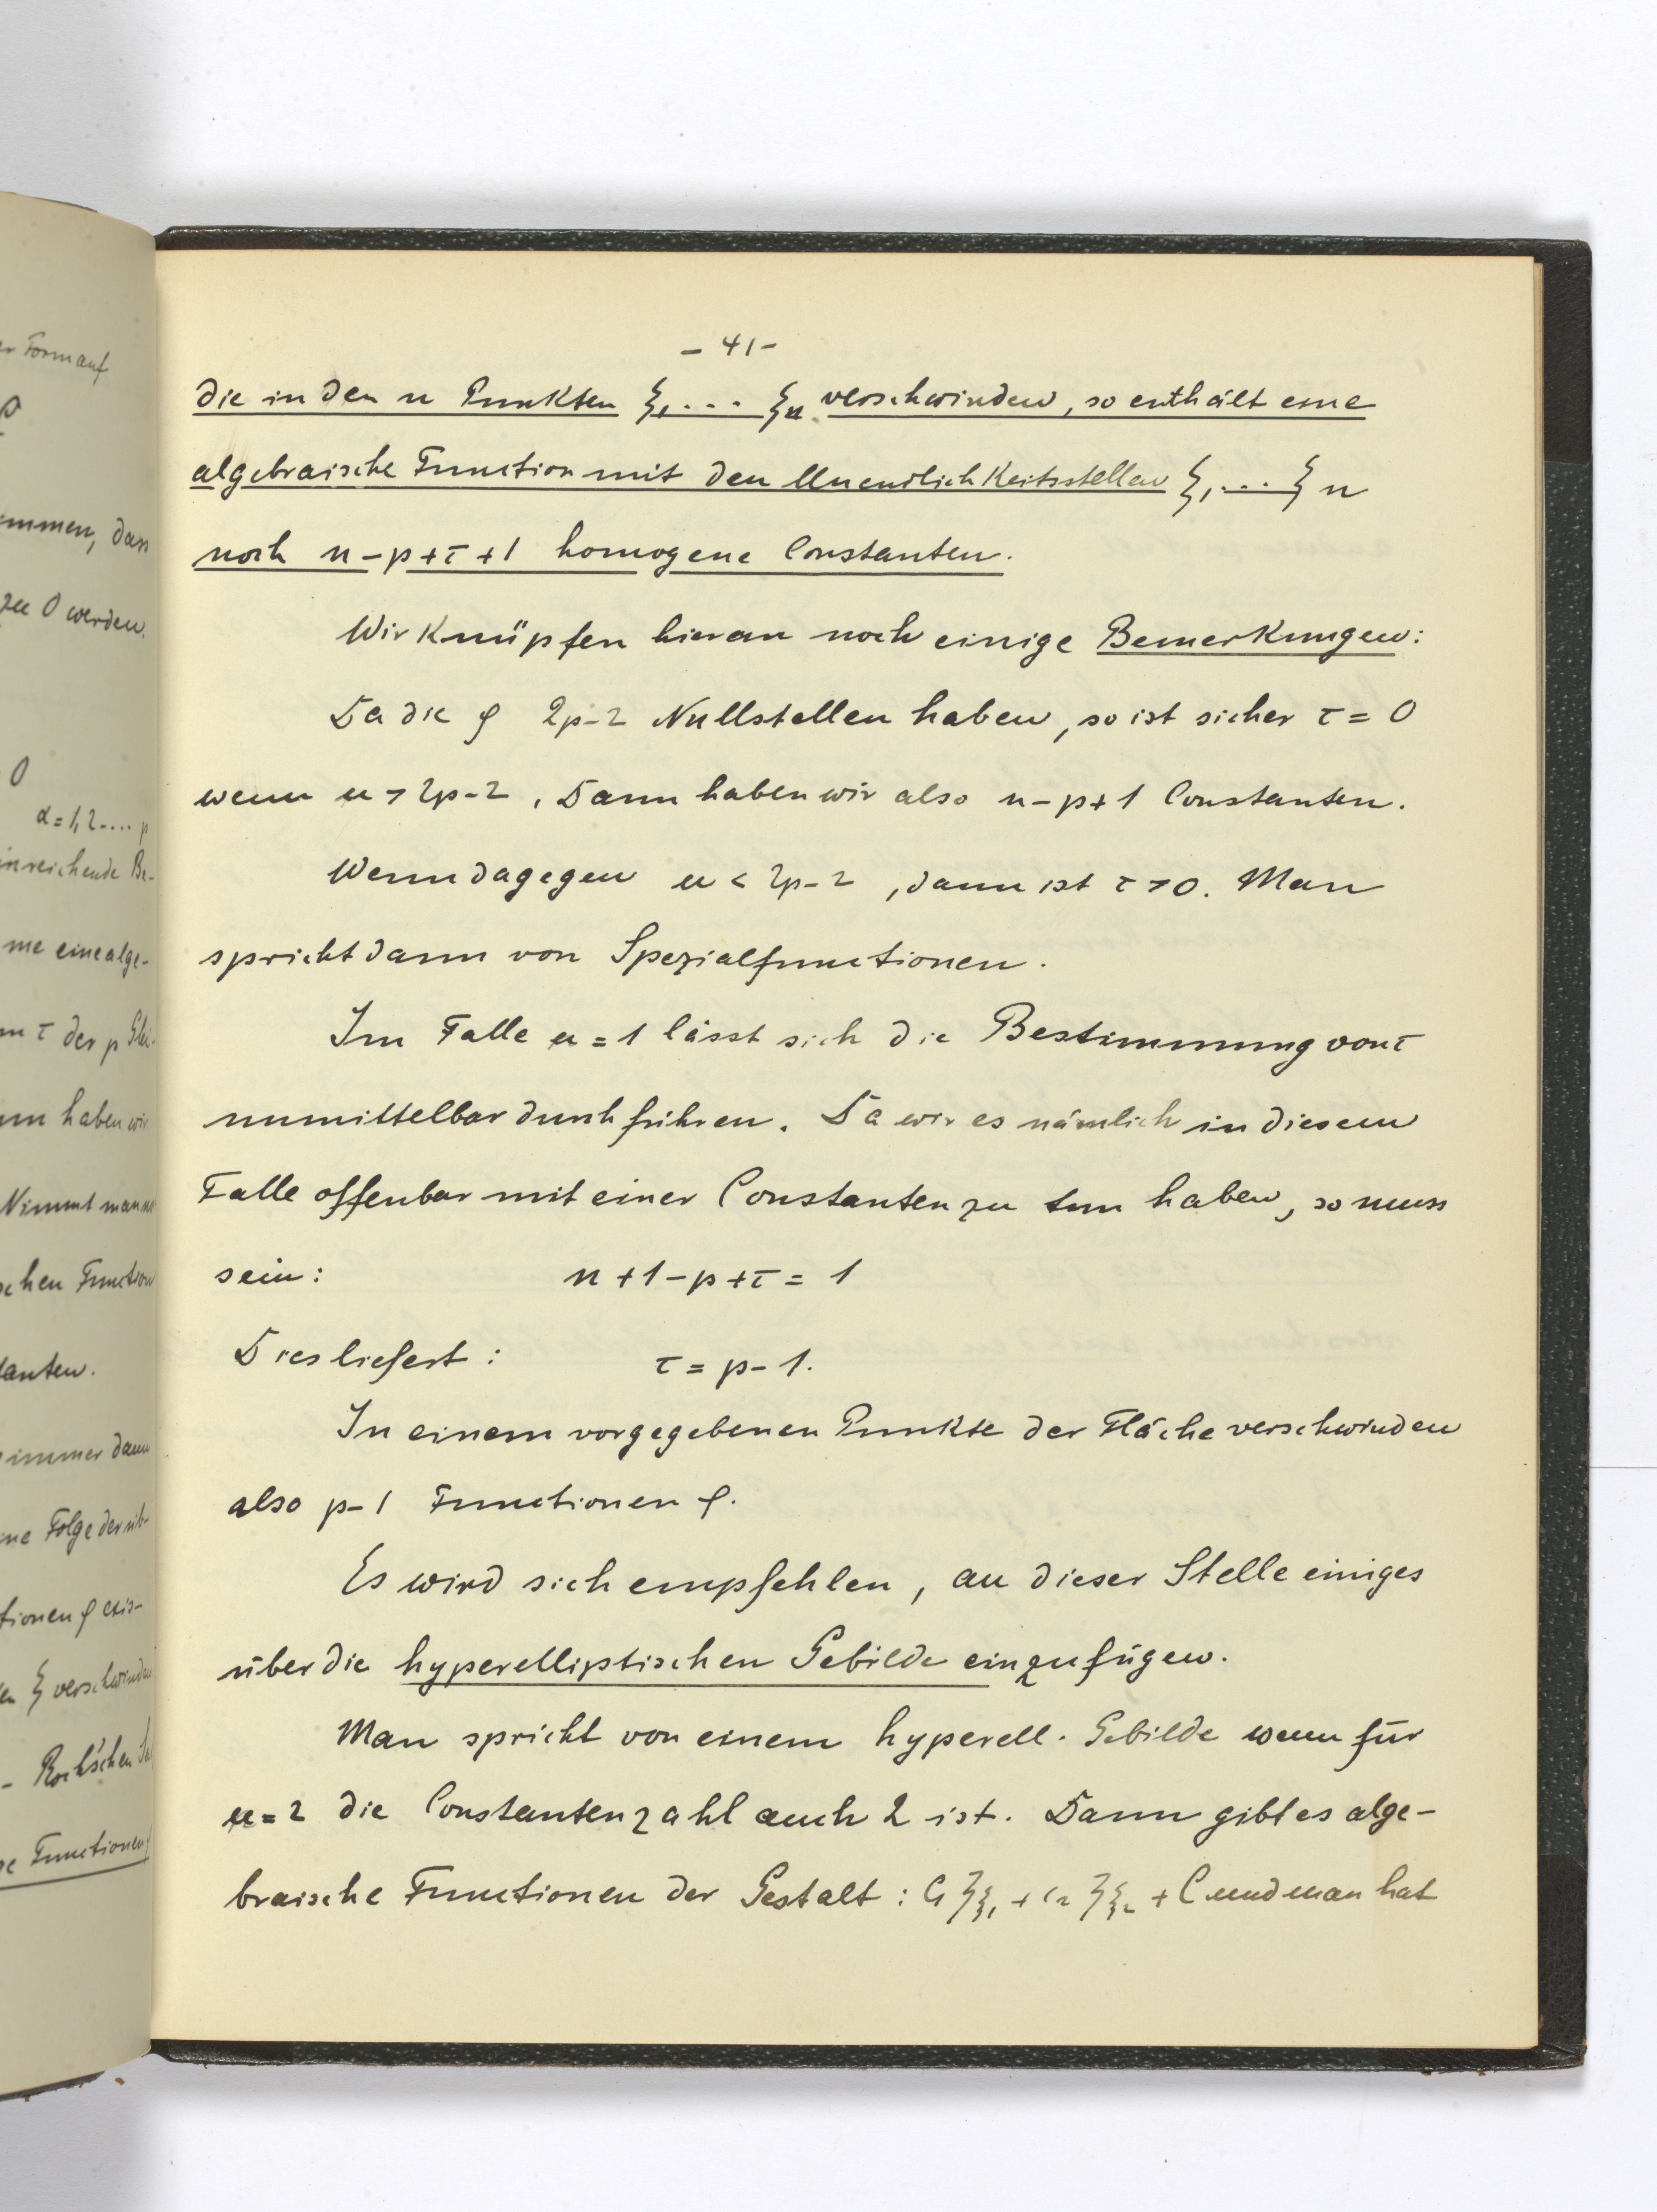 - 41 -
die in den n Punkten ξ₁ . . . ξₙ verschwinden, so enthält eine
algebraische Function mit den Unendlichkeitsstellen ξ₁ . . . ξ n
noch n - p + τ + 1 homogene Constanten.
Wir knüpfen hieran noch einige Bemerkungen:
Da die φ 2p-2 Nullstellen haben, so ist sicher τ = 0
wenn n > 2p-2 , Dann haben wir also n - p + 1 Constanten.
Wenn dagegen n < 2p-2 , dann ist τ > 0. Man
spricht dann von Spezialfunctionen.
Im Falle n = 1 lässt sich die Bestimmung von τ
unmittelbar durchführen. Da wir es nämlich in diesem
Falle offenbar mit einer Constanten zu tun haben, so muss
sein: n + 1 - p + τ = 1
Dies liefert: τ = p - 1.
In einem vorgegebenen Punkte der Fläche verschwinden
also p-1 Functionen φ.
Es wird sich empfehlen, an dieser Stelle einiges
über die hyperelliptischen Gebilde einzufügen.
Man spricht von einem hyperell. Gebilde wenn für
n = 2 die Constantenzahl auch 2 ist. Dann gibt es alge-
braische Functionen der Gestalt: + C und man hat
er Form auf
ommen, dass
zu 0 werden.
0
α = 1, 2 .... p
inreichende Be-
me eine alge-
m τ der p Glei-
nn haben wir
Nimmt man
schen Function
tanten.
immer dann
ne Folge der üb-
tionen φ exis-
en ξ verschwinden
- Roch'schen
e Functionen φ